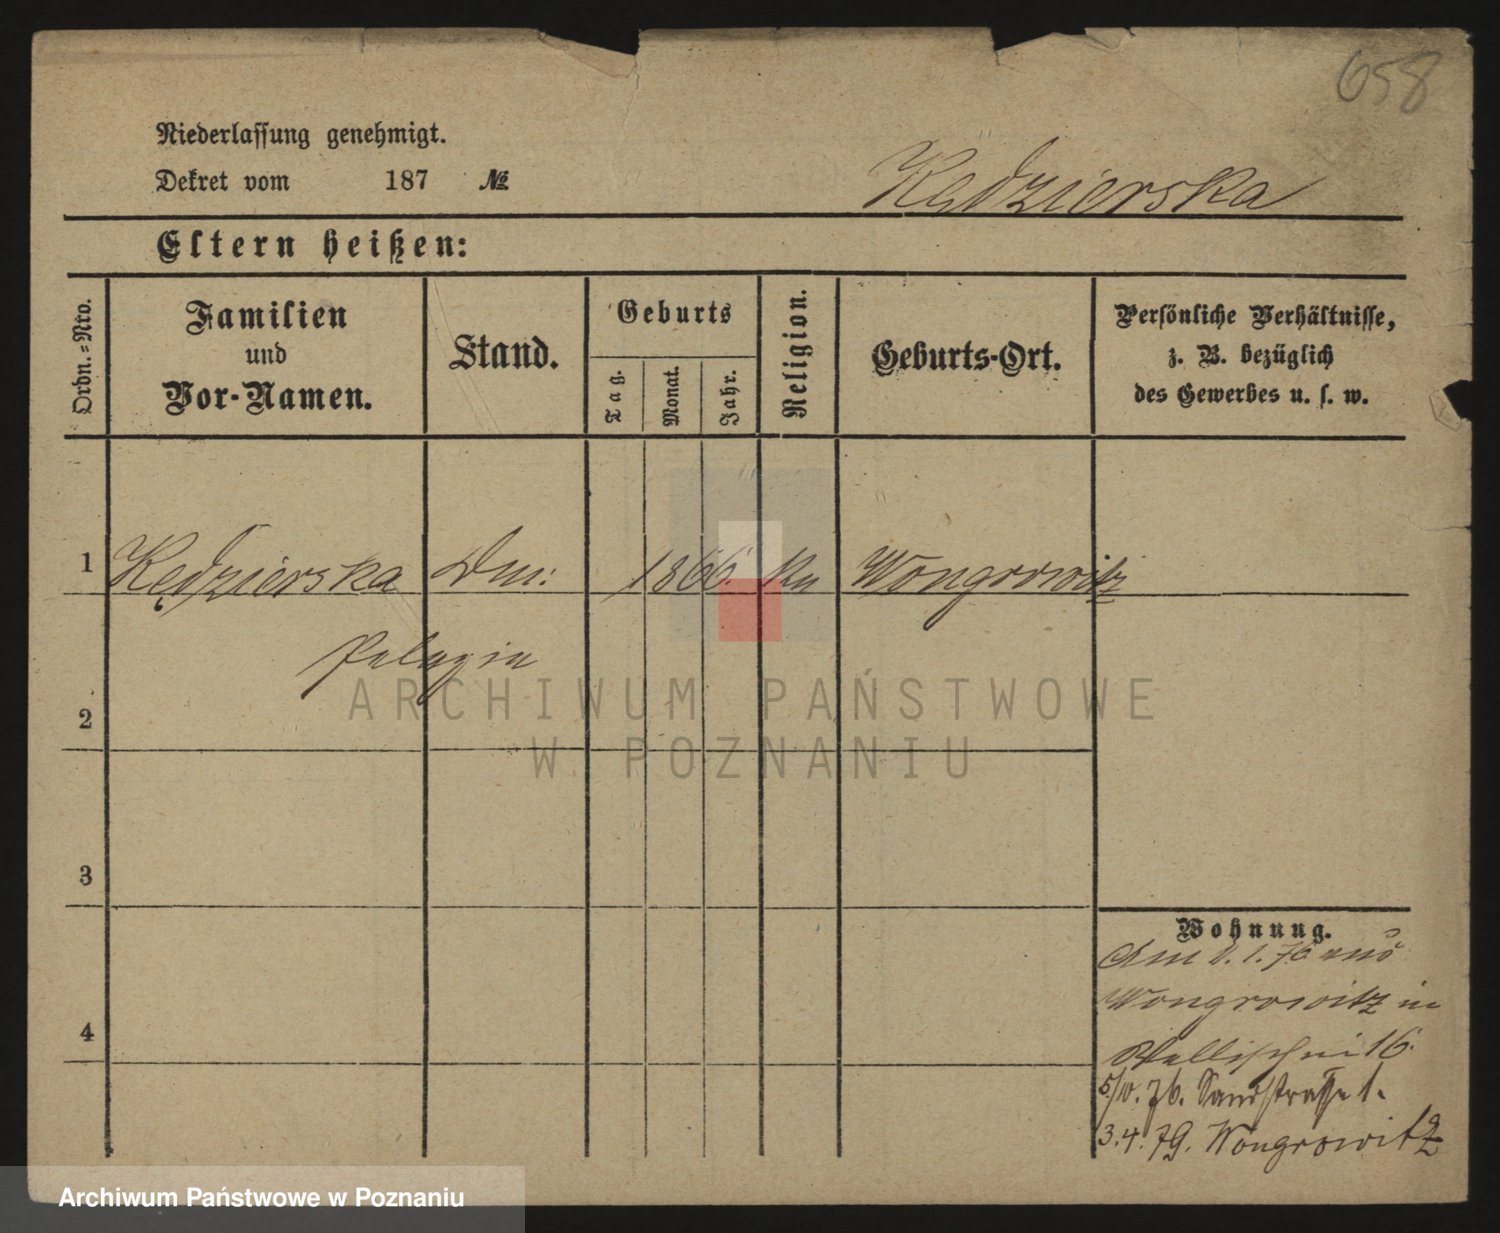 658
Niederlassung genehmigt.
Dekret vom 187 №
Kędzierska
Eltern heißen:
Ordn.=Nro.
Familien
und
Vor-Namen.
Stand.
Geburts
Tag.
Monat.
Jahr.
Religion.
Geburts-Ort.
Persönliche Verhältnisse,
z. B. bezüglich
des Gewerbes u. s. w.
1 Kędzierska 1866. Wongrowitz
Pelagia
2
3
4
Wohnung.
Am 1.76 aus
Wongrowitz in
Wallischei 16.
5/10.76. Sandstrasse 1.
3.4.79. Wongrowitz
ARCHIWUM PAŃSTWOWE
W POZNANIU
Archiwum Państwowe w Poznaniu